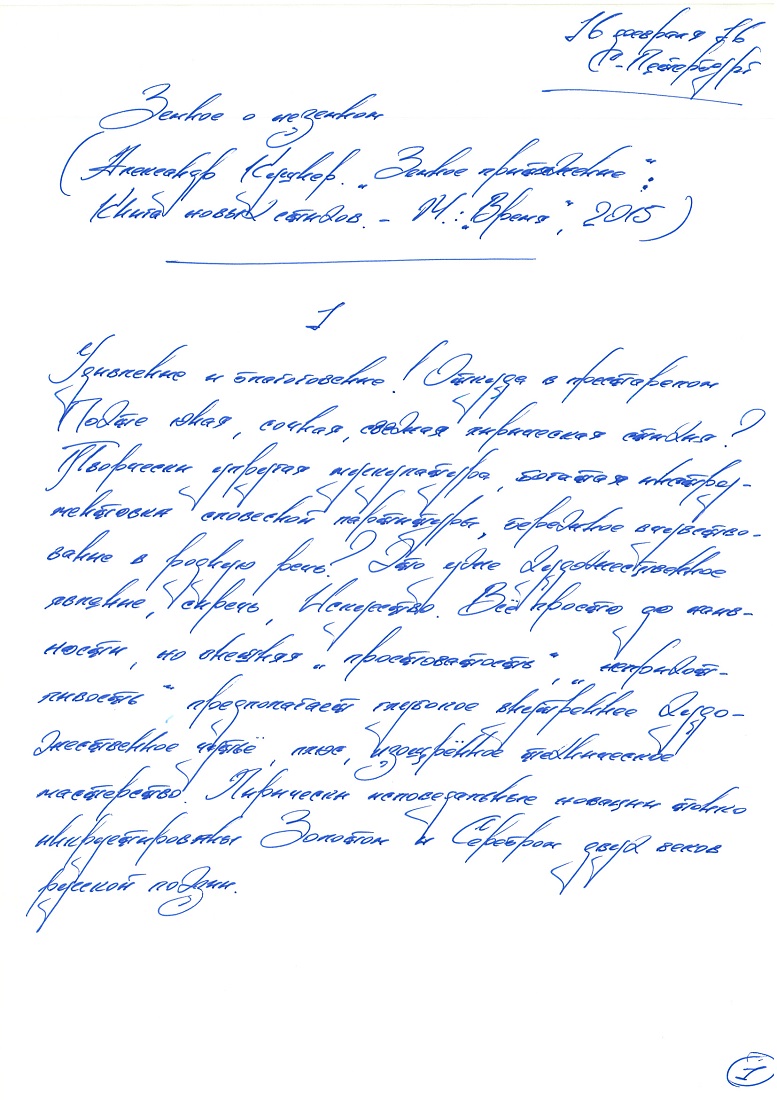 16 февраля 16
С-Петербург
Земное о неземном
(Александр Кушнер. „Земное притяжение“:
Книга новых стихов. – М.: „Время“, 2015)
1
Удивление и благоговение! Откуда в престарелом
Поэте юная, сочная, свежая лирическая стихия?
Творчески упругая мускулатура, богатая инстру-
ментовка словесной партитуры, бережное вчувство-
вание в родную речь? Это уже художественное
явление, сиречь, Искусство. Всё просто до наив-
ности, но внешняя „простоватость“, „неприхот-
ливость“ предполагает глубокое внутреннее худо-
жественное чутьё, плюс, изощрённое техническое
мастерство. Лирически исповедальные новации тонко
инкрустированы Золотом и Серебром двух веков
русской поэзии.
1